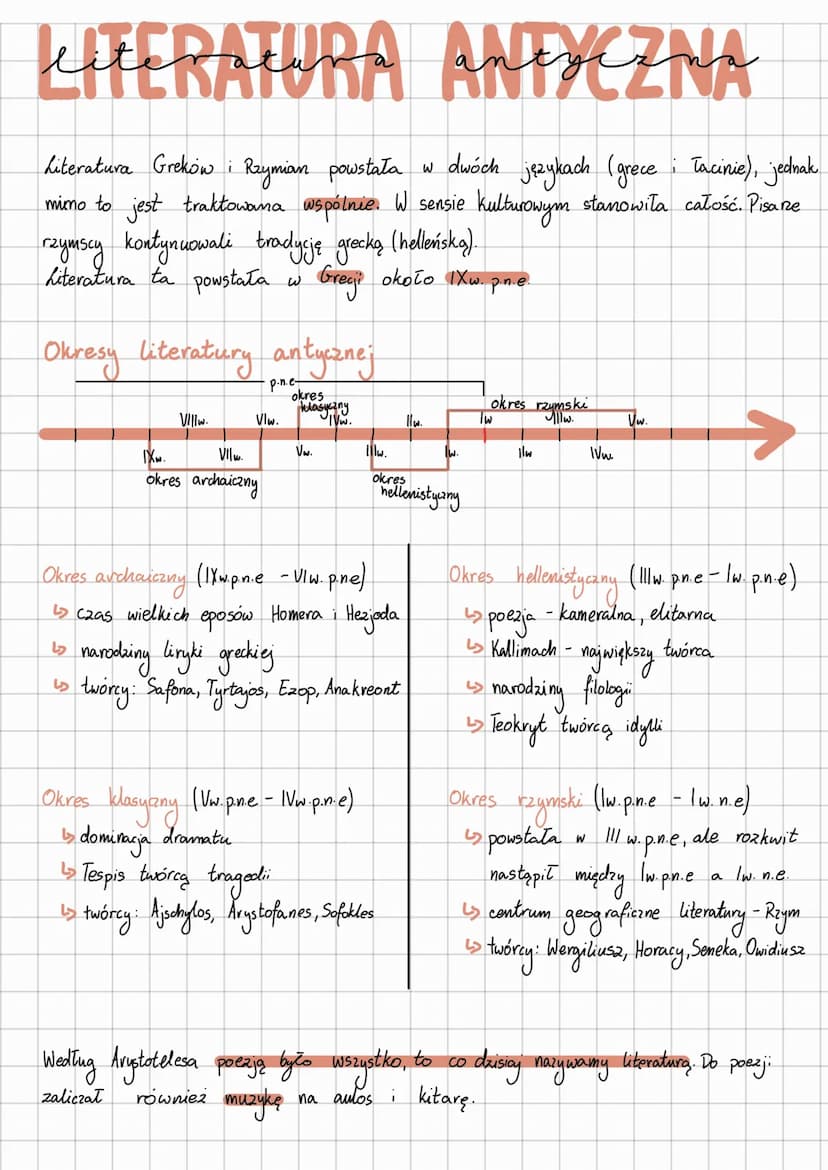 LITERATURA ANTYCZNA
literatura antyczna
Literatura Greków i Rzymian powstała w dwóch językach (grece i łacinie), jednak
mimo to jest traktowana wspólnie. W sensie kulturowym stanowiła całość. Pisarze
rzymscy kontynuowali tradycję grecką (helleńską).
Literatura ta powstała w Grecji około IXw. p.n.e
Okresy literatury antycznej
p.n.e
okres
klasyczny
okres rzymski
VIIIw. VIw. IVw. IIw. Iw IIIw. Vw.
IXw. VIIw. Vw. IIIw. Iw. IIw IVw
okres archaiczny
okres
hellenistyczny
Okres archaiczny (IXw.p.n.e - VIw. p.n.e)
↳ czas wielkich eposów Homera i Hezjoda
↳ narodziny liryki greckiej
↳ twórcy: Safona, Tyrtajos, Ezop, Anakreont
Okres hellenistyczny (IIIw. p.n.e - Iw. p.n.e)
↳ poezja - kameralna, elitarna
↳ Kallimach - największy twórca
↳ narodziny filologii
↳ Teokryt twórcą idylli
Okres klasyczny (Vw.p.n.e - IVw.p.n.e)
↳ dominacja dramatu
↳ Tespis twórcą tragedii
↳ twórcy: Ajschylos, Arystofanes, Sofokles
Okres rzymski (Iw.p.n.e - Iw. n.e)
↳ powstała w III w. p.n.e, ale rozkwit
nastąpił między Iw. p.n.e a Iw. n.e.
↳ centrum geograficzne literatury - Rzym
↳ twórcy: Wergiliusz, Horacy, Seneka, Owidiusz
Według Arystotelesa poezją było wszystko, to co dzisiaj nazywamy literaturą. Do poezji
zaliczał również muzykę na aulos i kitarę.